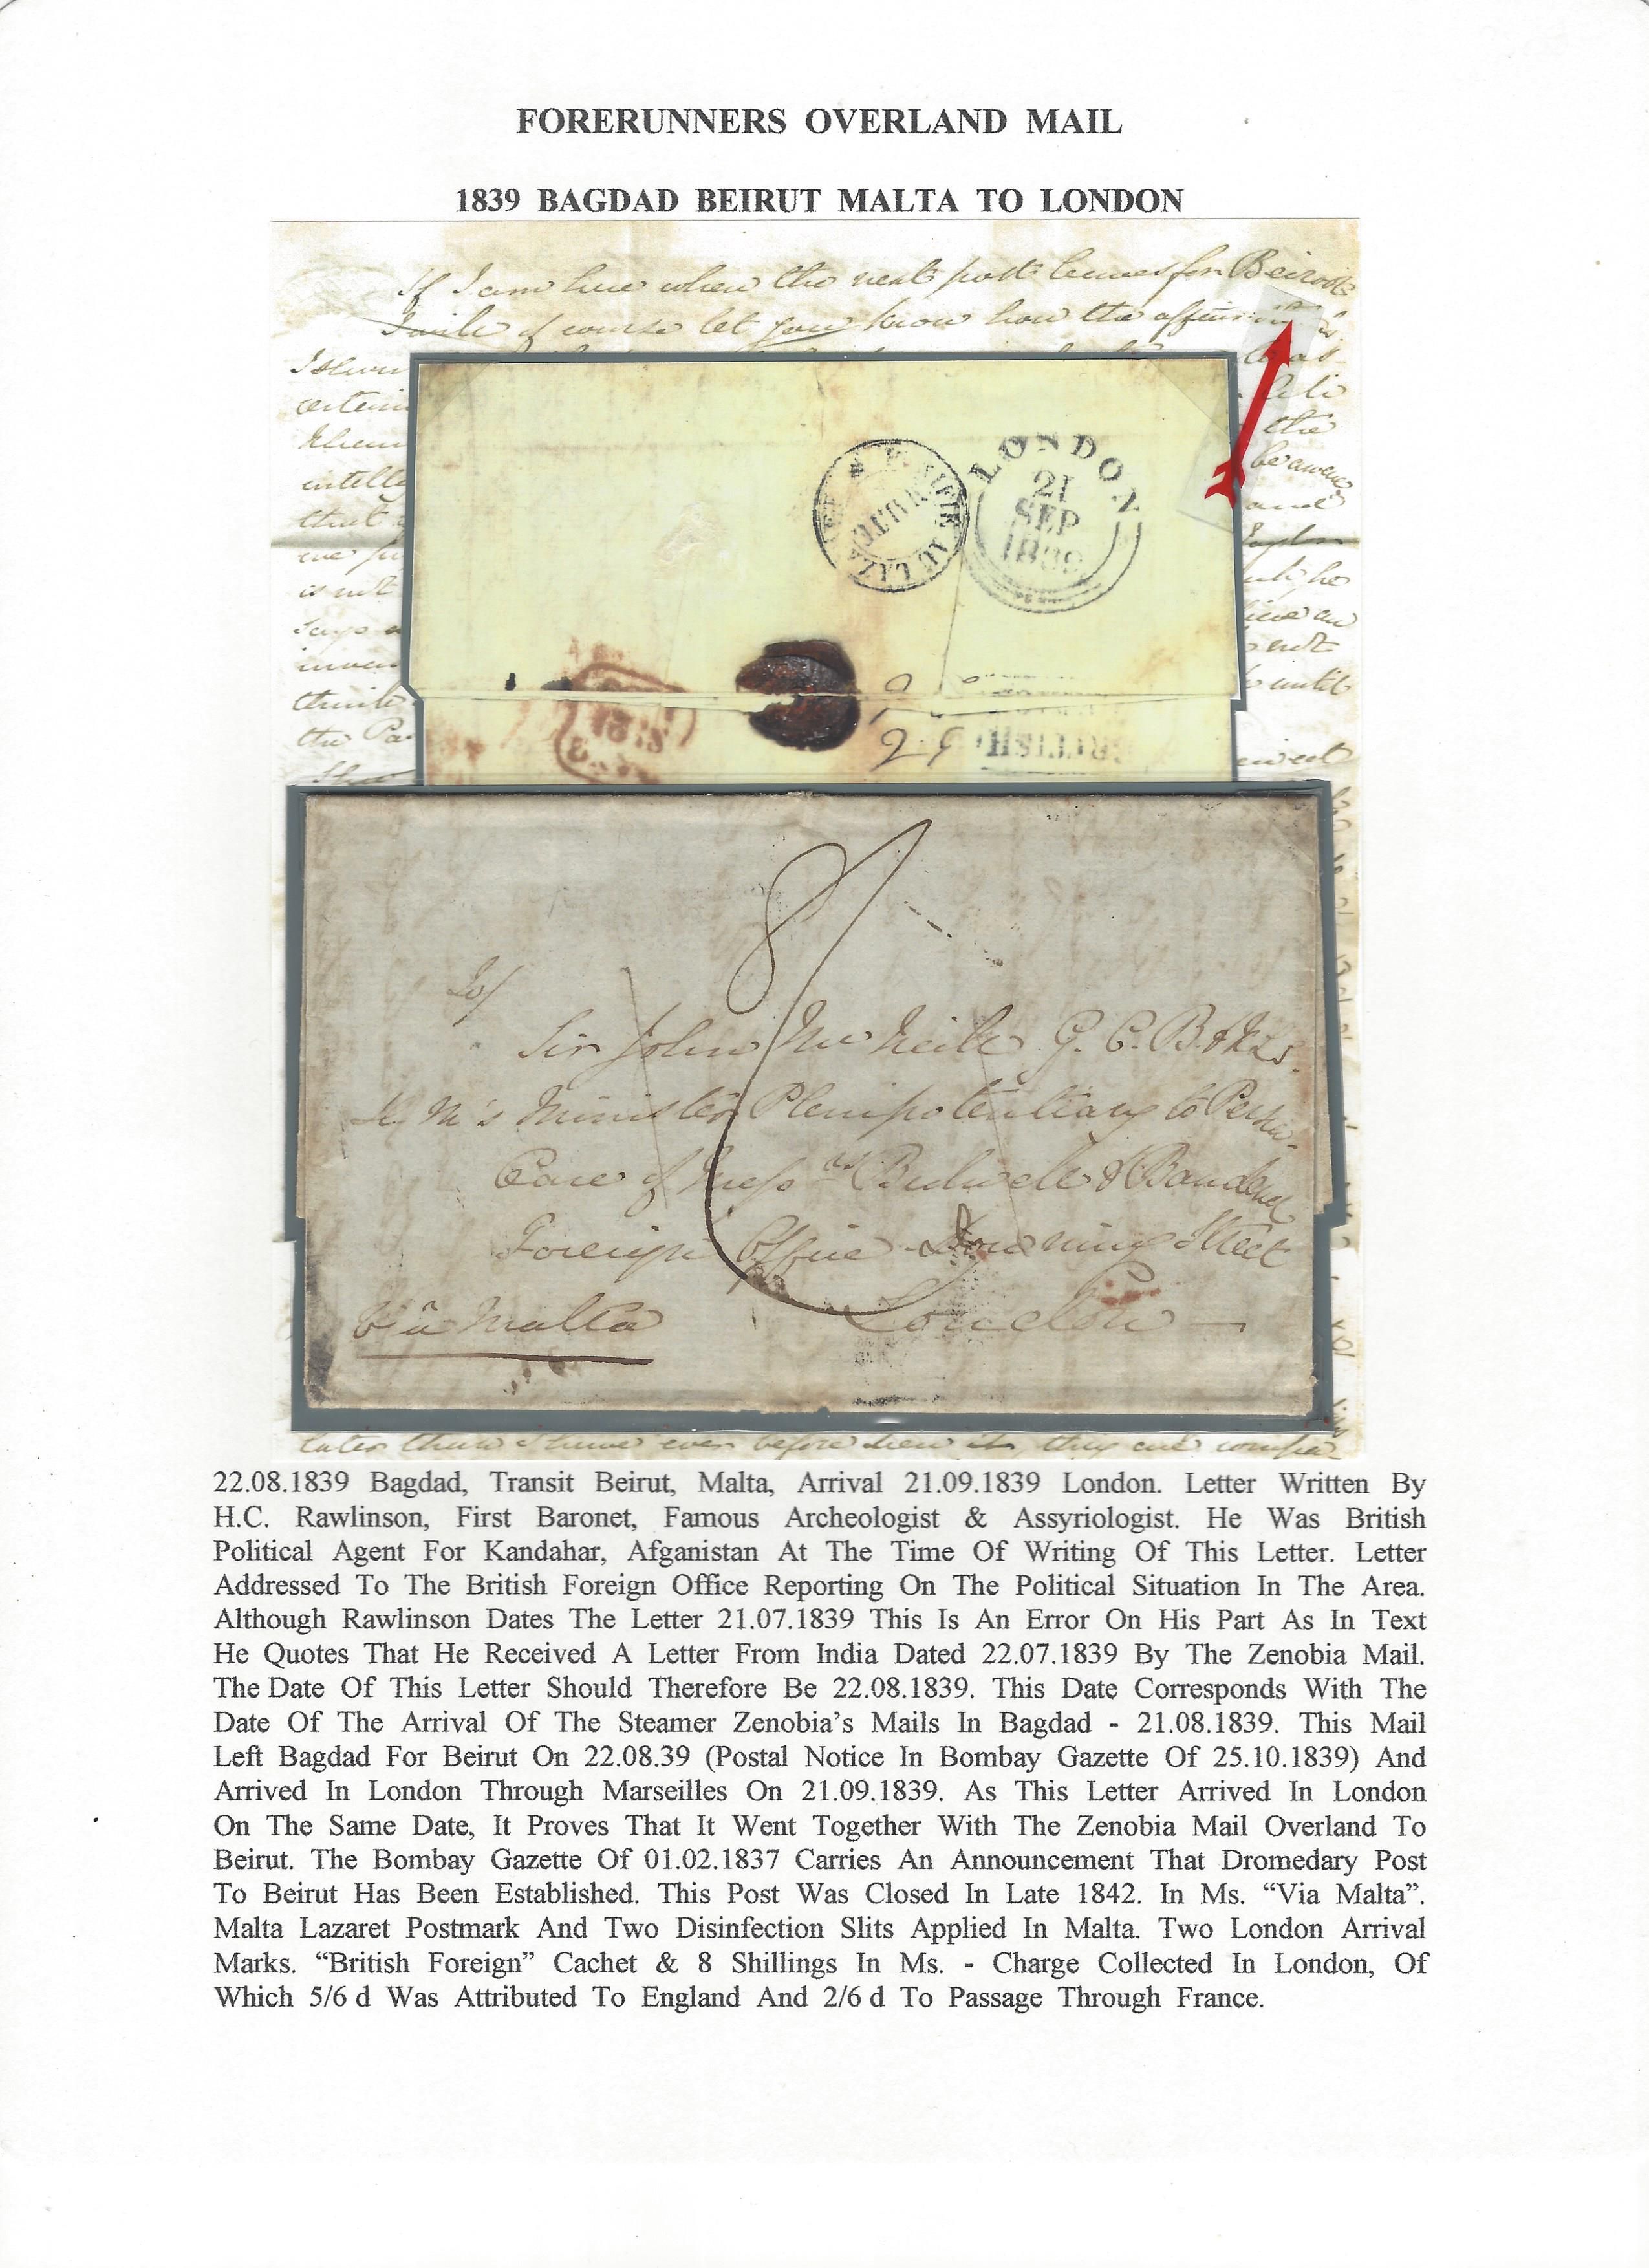 FORERUNNERS OVERLAND MAIL
1839 BAGDAD BEIRUT MALTA TO LONDON
If I am here when the next post leaves for Beiroot
I will of course let you know how the affair
certain
the
be aware
that
and
is not
he
not
think
until
the
LONDON
21
SEP
1839
BRITISH
8/
To/
Sir John McNeill G.C.B. & K.L.S.
H M's Minister Plenipotentiary to Persia
Care of Messrs Bidwell & Bandinel
Foreign Office Downing Street
London
Via Malta
later than I have ever before seen it, they are
22.08.1839 Bagdad, Transit Beirut, Malta, Arrival 21.09.1839 London. Letter Written By
H.C. Rawlinson, First Baronet, Famous Archeologist & Assyriologist. He Was British
Political Agent For Kandahar, Afganistan At The Time Of Writing Of This Letter. Letter
Addressed To The British Foreign Office Reporting On The Political Situation In The Area.
Although Rawlinson Dates The Letter 21.07.1839 This Is An Error On His Part As In Text
He Quotes That He Received A Letter From India Dated 22.07.1839 By The Zenobia Mail.
The Date Of This Letter Should Therefore Be 22.08.1839. This Date Corresponds With The
Date Of The Arrival Of The Steamer Zenobia's Mails In Bagdad - 21.08.1839. This Mail
Left Bagdad For Beirut On 22.08.39 (Postal Notice In Bombay Gazette Of 25.10.1839) And
Arrived In London Through Marseilles On 21.09.1839. As This Letter Arrived In London
On The Same Date, It Proves That It Went Together With The Zenobia Mail Overland To
Beirut. The Bombay Gazette Of 01.02.1837 Carries An Announcement That Dromedary Post
To Beirut Has Been Established. This Post Was Closed In Late 1842. In Ms. “Via Malta”.
Malta Lazaret Postmark And Two Disinfection Slits Applied In Malta. Two London Arrival
Marks. “British Foreign” Cachet & 8 Shillings In Ms. - Charge Collected In London, Of
Which 5/6 d Was Attributed To England And 2/6 d To Passage Through France.